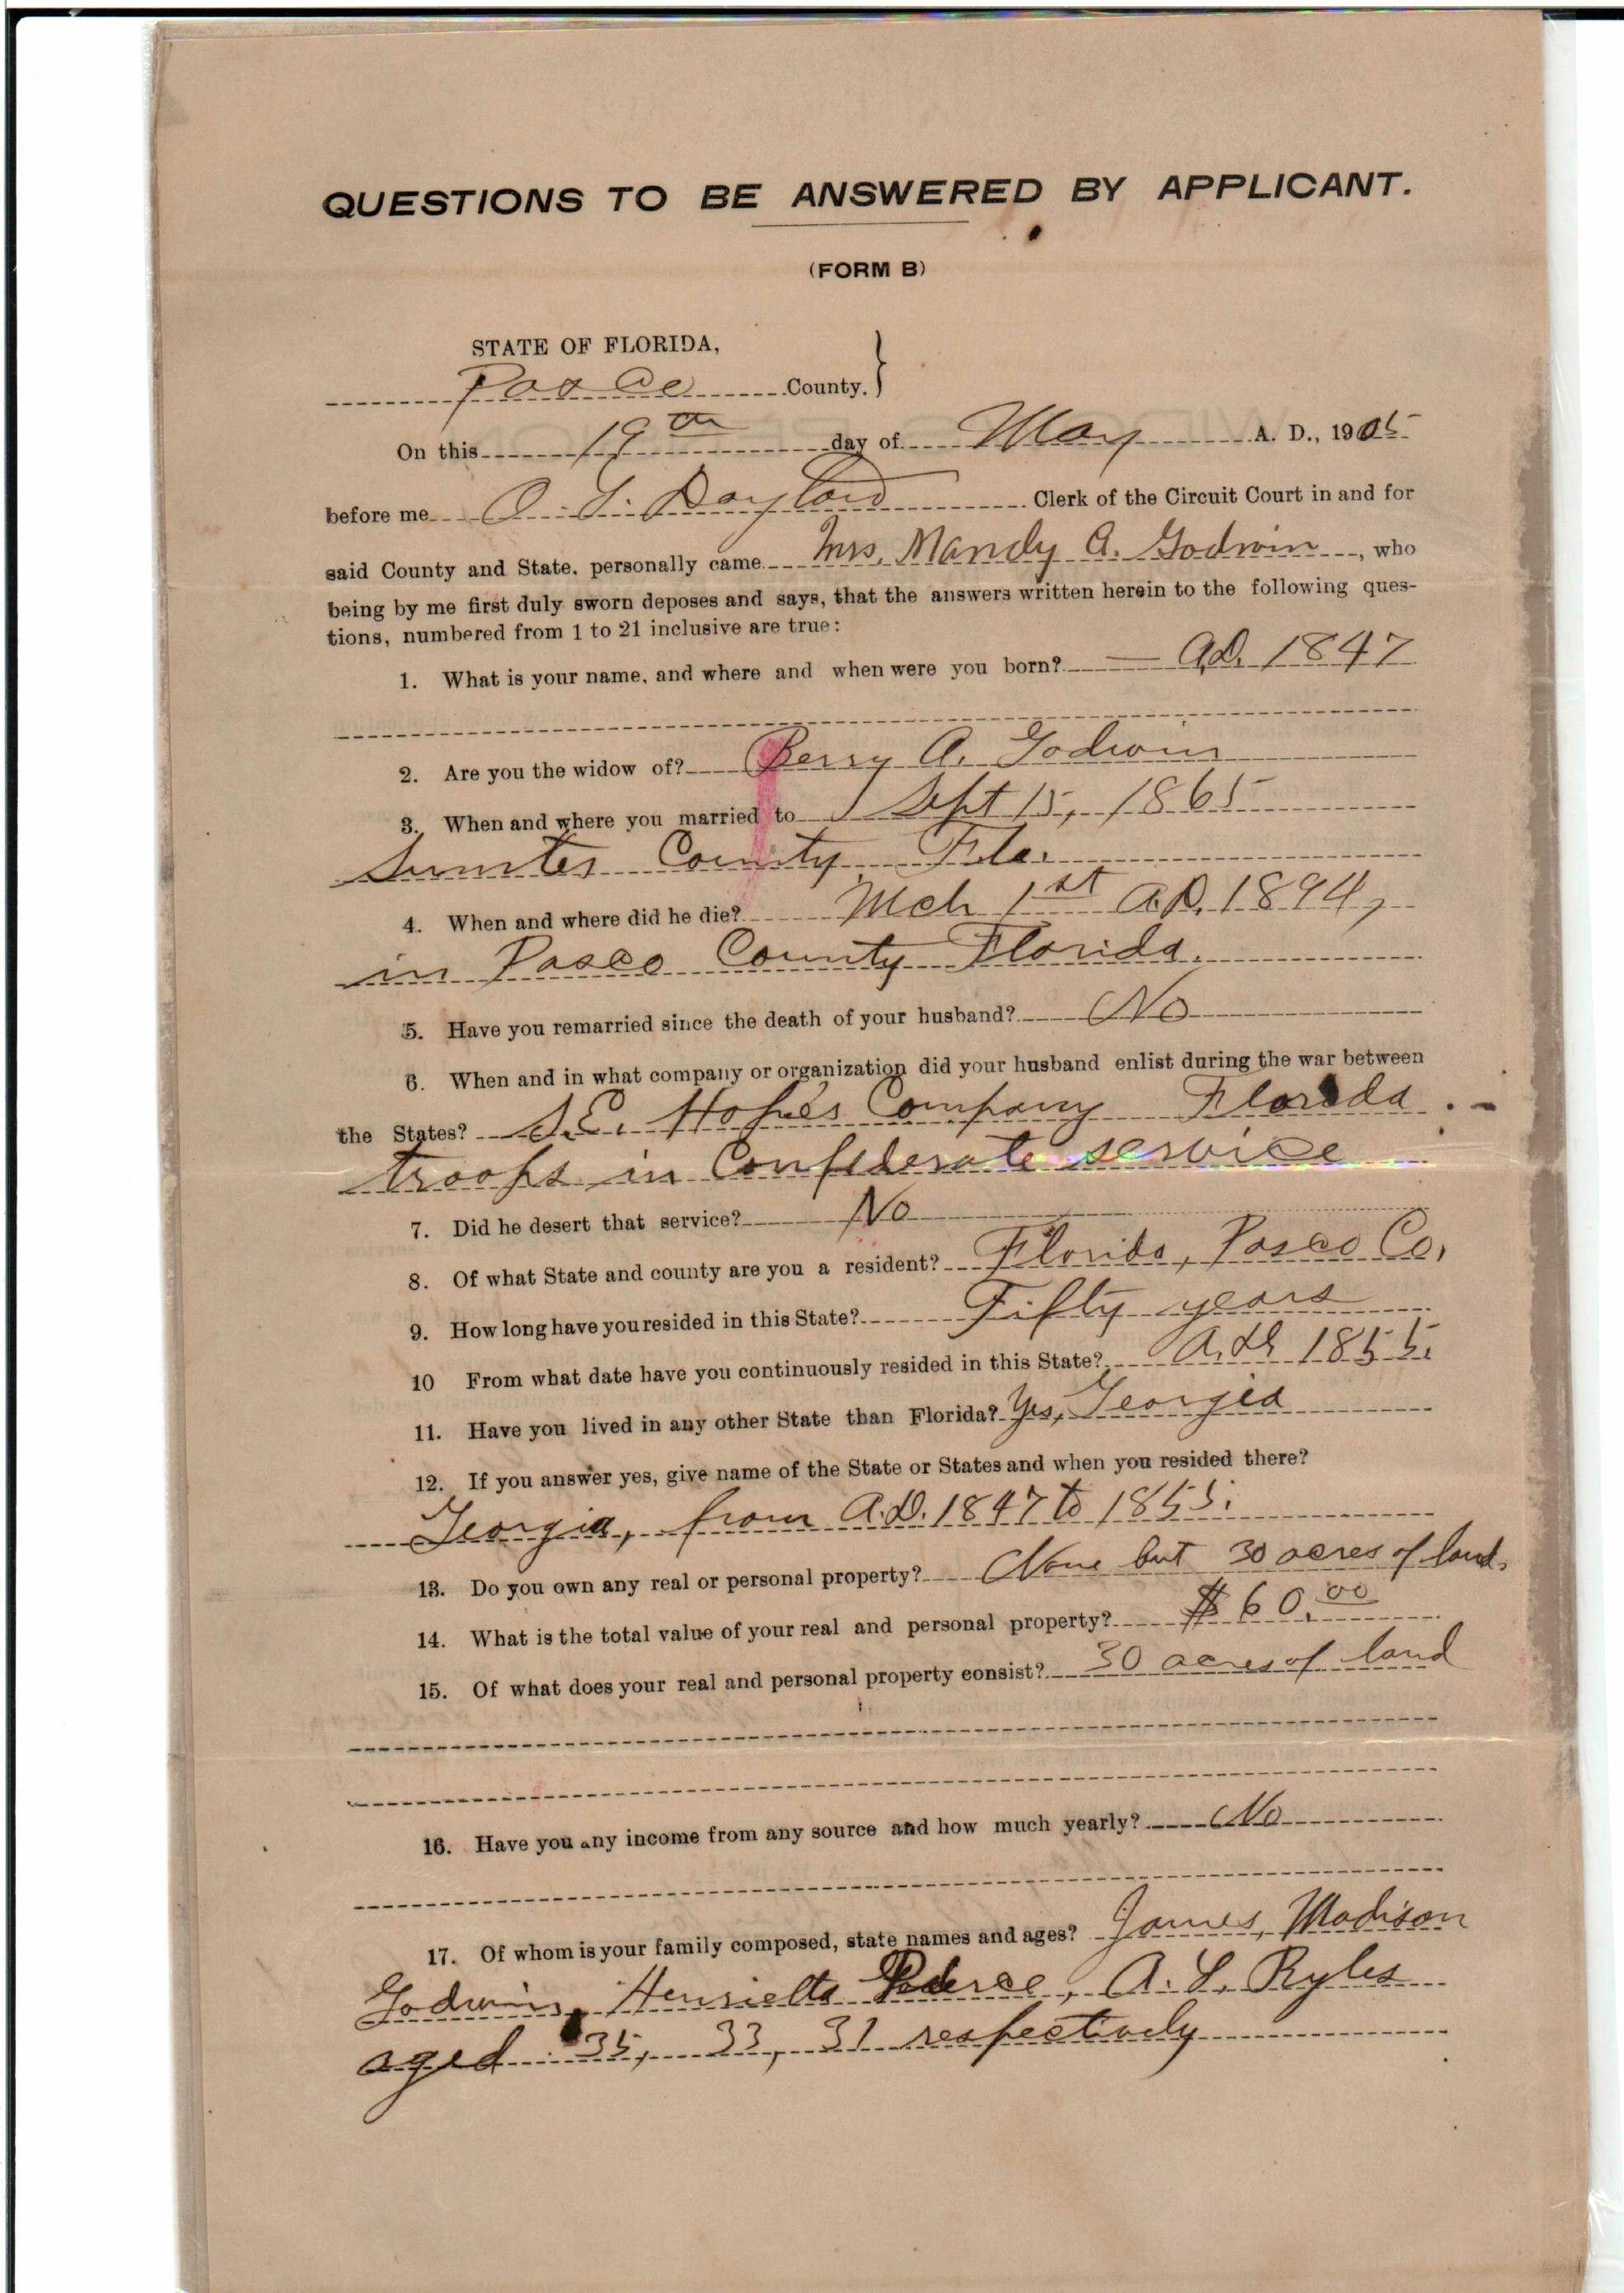 QUESTIONS TO BE ANSWERED BY APPLICANT.
(FORM B)
STATE OF FLORIDA,
Pasco County.
On this 19th day of May A. D., 1905
before me O. L. Dayton Clerk of the Circuit Court in and for
said County and State, personally came Mrs. Mandy A. Godwin, who
being by me first duly sworn deposes and says, that the answers written herein to the following ques-
tions, numbered from 1 to 21 inclusive are true:
1. What is your name, and where and when were you born? — A.D. 1847
2. Are you the widow of? Berry A. Godwin
3. When and where you married to Sept 15, 1865
Sumter County Fla.
4. When and where did he die? Mch 1st A.D. 1894,
in Pasco County Florida.
5. Have you remarried since the death of your husband? No
6. When and in what company or organization did your husband enlist during the war between
the States? S.E. Hope's Company Florida
troops in Confederate service
7. Did he desert that service? No
8. Of what State and county are you a resident? Florida, Pasco Co,
9. How long have you resided in this State? Fifty years
10 From what date have you continuously resided in this State? A.D. 1855.
11. Have you lived in any other State than Florida? Yes, Georgia
12. If you answer yes, give name of the State or States and when you resided there?
Georgia, from A.D. 1847 to 1855.
13. Do you own any real or personal property? None but 30 acres of land.
14. What is the total value of your real and personal property? $60.00
15. Of what does your real and personal property consist? 30 acres of land
16. Have you any income from any source and how much yearly? No
17. Of whom is your family composed, state names and ages? James, Madison
Godwin, Henrietta Pederse, A. L. Ryles
aged 35, 33, 31 respectively